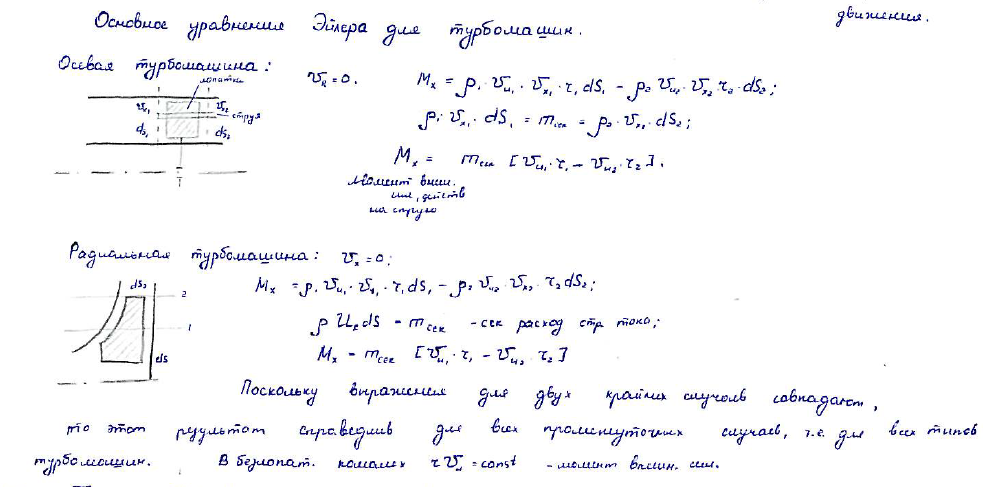 движения.
Основное уравнения Эйлера для турбомашин.
Осевая турбомашина:
лопатки
v_R = 0.
M_x = ρ₁ · v_u₁ · v_x₁ · r₁ dS₁ − ρ₂ v_u₂ v_x₂ r₂ · dS₂;
v_x₁ v_x₂
струя
dS₁ dS₂
ρ₁ · v_x₁ · dS₁ = m_сек = ρ₂ · v_x₂ · dS₂;
M_x = m_сек [v_u₁ · r₁ − v_u₂ · r₂].
Момент внеш.
сил, действ
на струю
Радиальная турбомашина: v_x = 0;
dS₂
2
1
dS
M_x = ρ₁ v_u₁ · v_R₁ · r₁ dS₁ − ρ₂ v_u₂ · v_R₂ r₂ dS₂;
ρ v_R dS = m_сек - сек расход стр тока;
M_x = m_сек [v_u₁ · r₁ − v_u₂ · r₂]
Поскольку выражения для двух крайних случаев совпадают,
то этот результат справедлив для всех промежуточных случаев, т.е. для всех типов
турбомашин. В безлопат. каналах r v_u = const - момент внешн. сил.